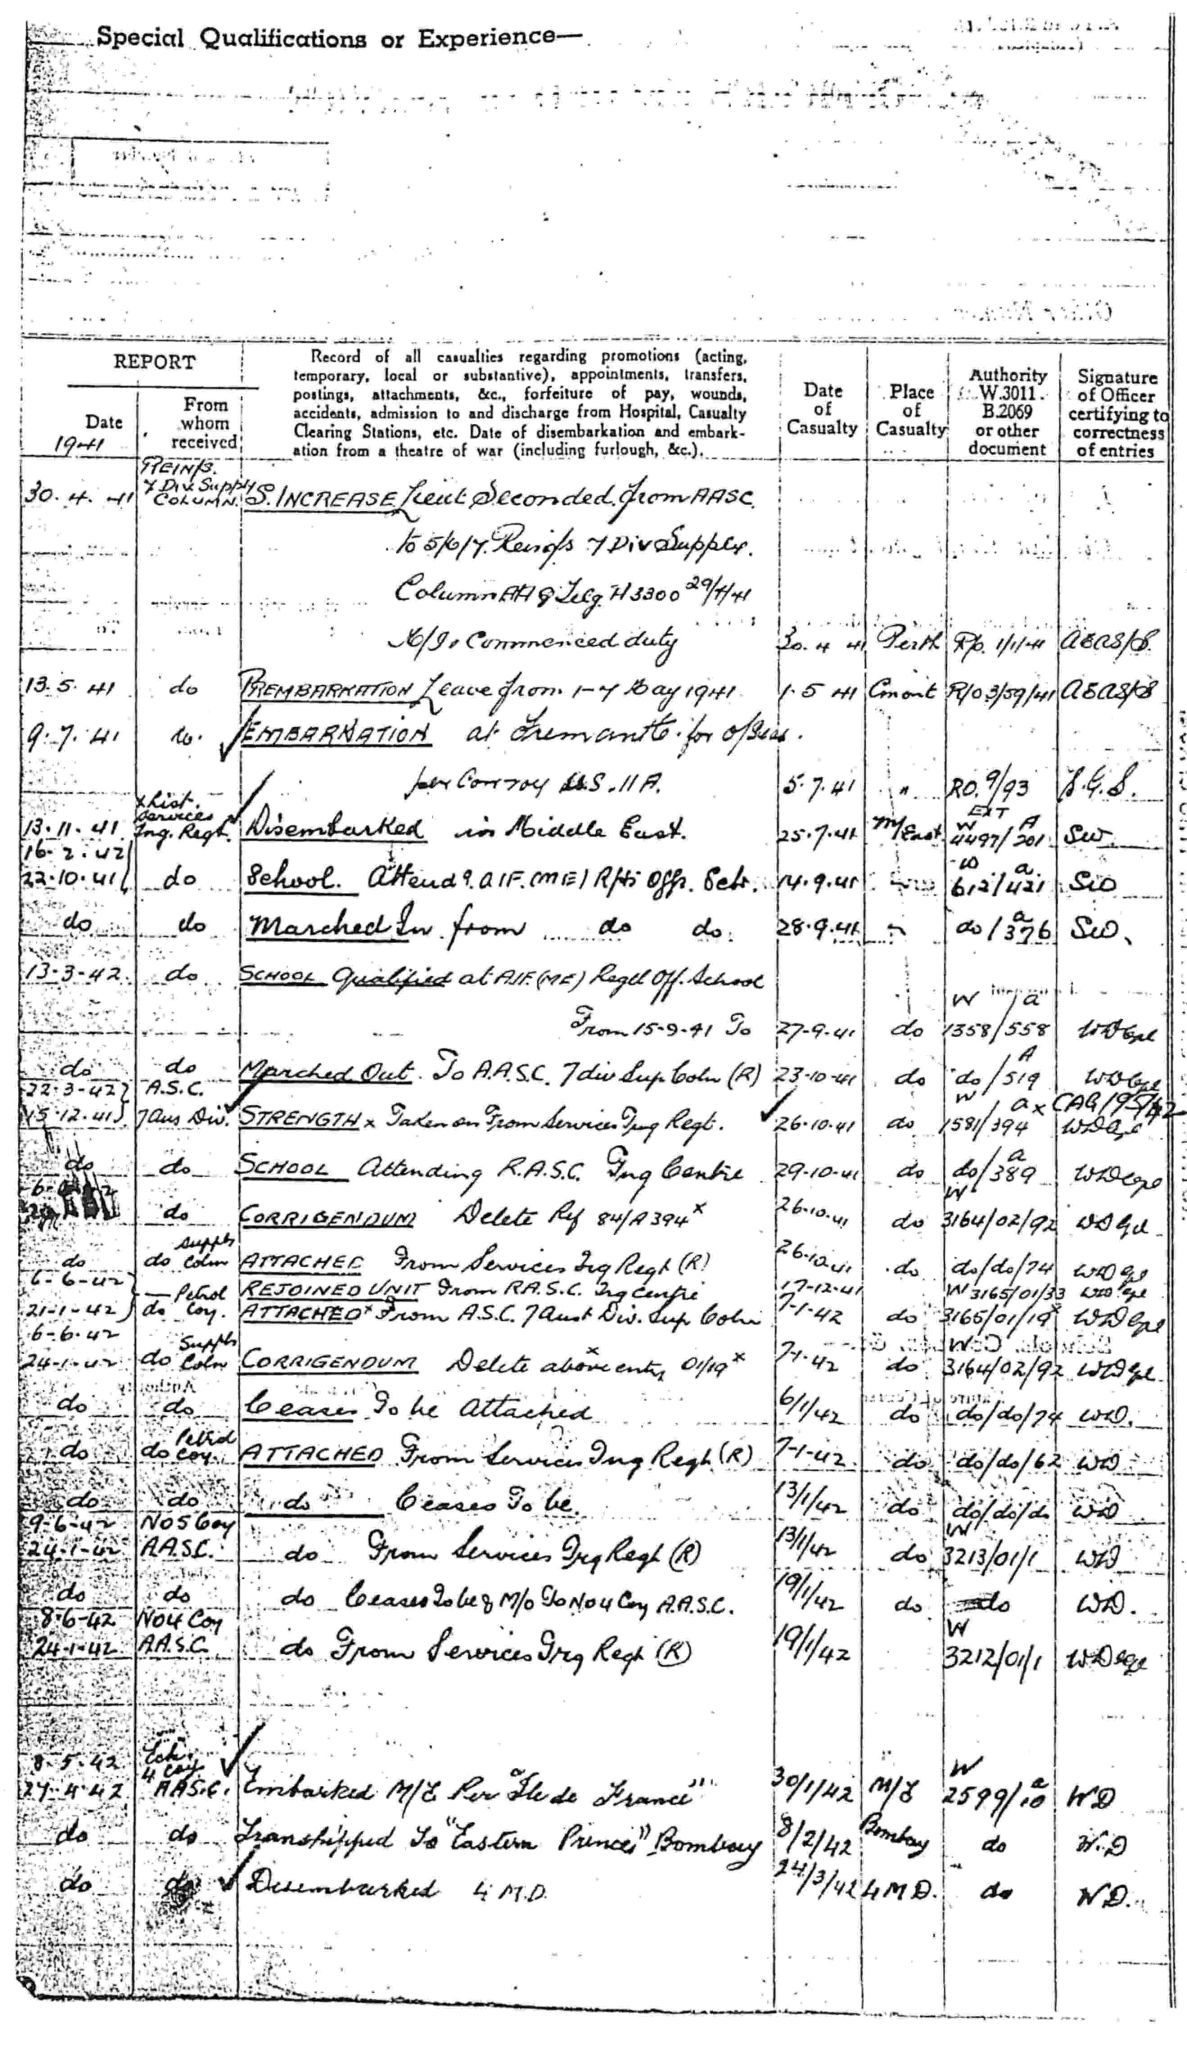 Special Qualifications or Experience—
REPORT
Date
1941
From
whom
received
Record of all casualties regarding promotions (acting,
temporary, local or substantive), appointments, transfers,
postings, attachments, &c., forfeiture of pay, wounds,
accidents, admission to and discharge from Hospital, Casualty
Clearing Stations, etc. Date of disembarkation and embark-
ation from a theatre of war (including furlough, &c.).
Date
of
Casualty
Place
of
Casualty
Authority
W.3011.
B.2069
or other
document
Signature
of Officer
certifying to
correctness
of entries
REINFS.
7 Div Supply
30. 4. 41 COLUMN. S. INCREASE Lieut Seconded from AASC
to 5/6/7. Reinfs 7 Div Supply.
Column AHQ Telg. H3300 29/4/41
Commenced duty 30. 4 41 Perth Rp. 1/1/41
13. 5. 41 do PREMBARKATION Leave from 1-7 May 1941 1. 5 41 R/O 3/59/41
9. 7. 41 EMBARKATION at Fremantle for O/Seas.
per Convoy U.S. 11A. 5. 7. 41 " RO. 9/93 S.G.S.
Services EXT
13. 11. 41 Tng. Regt. Disembarked in Middle East. 25.7.41 M/East W 4497/A 201 SW.
16. 2. 42
22. 10. 41 do School. Attend 9. AIF. (ME) Offs. Sch. 14.9.41 W 612/a 421 SW
do do Marched In from do do. 28.9.41 do/a 376 SW.
13-3-42. do SCHOOL Qualified at AIF. (ME) Regtl Off. School
From 15-9-41 To 27-9-41 do W 1358/a 558
do do Marched Out. To A.A.S.C. 7 div Sup Coln (R) 23-10-41 do do/A 519
22-3-42 A.S.C.
15.12.41 7 Aus Div. STRENGTH x Taken on From Services Tng Regt. 26-10-41 do W 1581/a 394 x CAG/195/42
do do SCHOOL Attending R.A.S.C. Tng Centre 29-10-41 do do/a 389
do CORRIGENDUM Delete Ref 84/A394 x 26-10-41 do W 3164/02/92
do do Supply Coln ATTACHED From Services Trg Regt (R) 26-10-41 do do/do/74
6-6-42 REJOINED UNIT From R.A.S.C. Trg Centre 17-12-41 W 3165/01/33
21-1-42 do Petrol Coy. ATTACHED x From A.S.C. 7 Aust Div. Sup Coln 7-1-42 do 3165/01/19 x
6-6-42
24-1-42 do Supply Coln CORRIGENDUM Delete above x entry 01/19 x 7-1-42 do W 3164/02/92
do do Ceases To be Attached 6/1/42 do do/do/74 WD.
do do Petrol Coy. ATTACHED From Services Tng Regt (R) 7-1-42. do do/do/62 WD
do do do Ceases To be. 13/1/42 do do/do/do WD
9-6-42 NO 5 Coy
24-1-42 A.A.S.C. do From Services Trg Regt (R) 13/1/42 do W 3213/01/1 WD
do do do Ceases To be & M/O To No 4 Coy A.A.S.C. 19/1/42 do do WD.
8-6-42 NO 4 Coy
24-1-42 A.A.S.C. do From Services Trg Regt (R) 19/1/42 W 3212/01/1
8. 5. 42 Ech.
27. 4. 42 4 Coy AASC. Embarked M/E Per "Ile de France" 30/1/42 M/E W 2599/a 10 WD
do do Transhipped To "Eastern Prince" Bombay 8/2/42 Bombay do W.D
do do Disembarked 4 M.D. 24/3/42 4 M D. do W D.